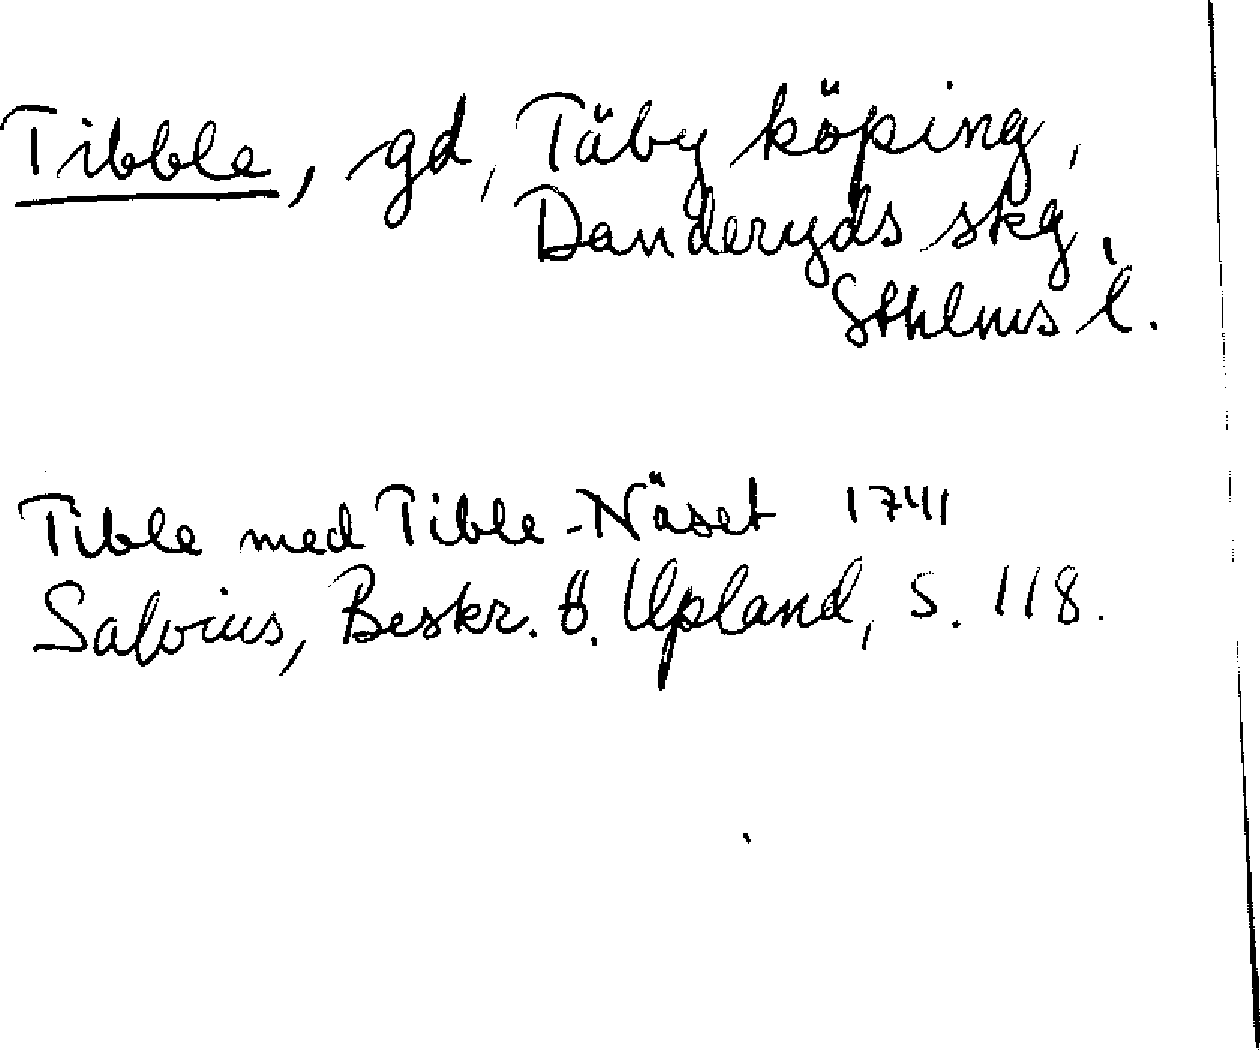 Tibble, gd, Täby köping,
Danderyds skg,
Sthlms l.
Tible med Tible-Näset 1741
Salvius, Beskr. ö. Upland, S. 118.